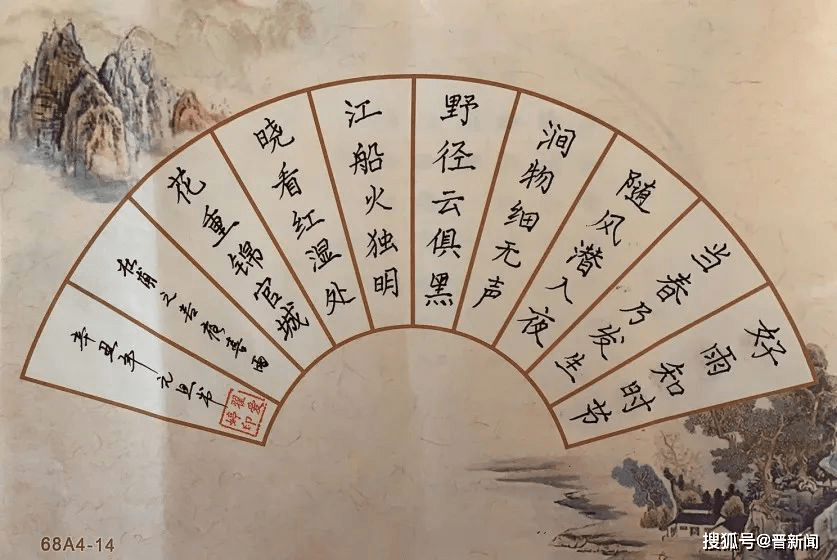 好雨知时节
当春乃发生
随风潜入夜
涧物细无声
野径云俱黑
江船火独明
晓看红湿处
花重锦官城
杜甫之春夜喜雨
辛丑年元旦书
翟愛婷印
68A4-14
搜狐号@晋新闻